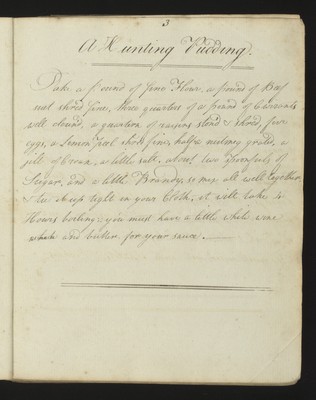 3
A Hunting Pudding.
Take a pound of fine Flour, a pound of Beef
suet shred fine, three quarters of a pound of Currants
well cleand, a quartern of raisins stond & shred, five
eggs, a Lemon peel shred fine, half a nutmeg grated, a
jill of Cream, a little salt, about two spoonfuls of
Sugar, and a little Brandy, so mix all well together
& tie it up tight in your Cloth, it will take 4
Hours boiling, you must have a little white wine
and butter for your sauce.